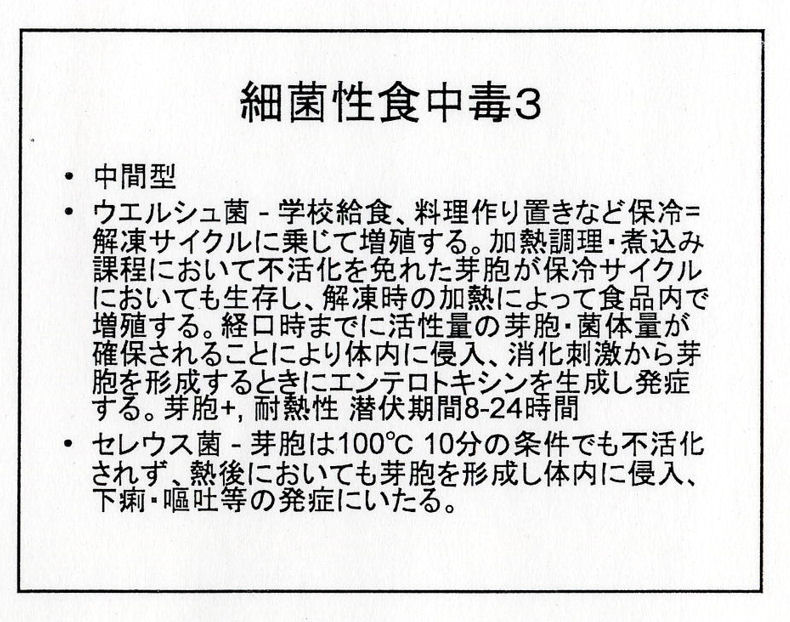 細菌性食中毒3
• 中間型
• ウエルシュ菌 - 学校給食、料理作り置きなど保冷=
解凍サイクルに乗じて増殖する。加熱調理・煮込み
課程において不活化を免れた芽胞が保冷サイクル
においても生存し、解凍時の加熱によって食品内で
増殖する。経口時までに活性量の芽胞・菌体量が
確保されることにより体内に侵入、消化刺激から芽
胞を形成するときにエンテロトキシンを生成し発症
する。芽胞+, 耐熱性 潜伏期間8-24時間
• セレウス菌 - 芽胞は100℃ 10分の条件でも不活化
されず、熱後においても芽胞を形成し体内に侵入、
下痢・嘔吐等の発症にいたる。